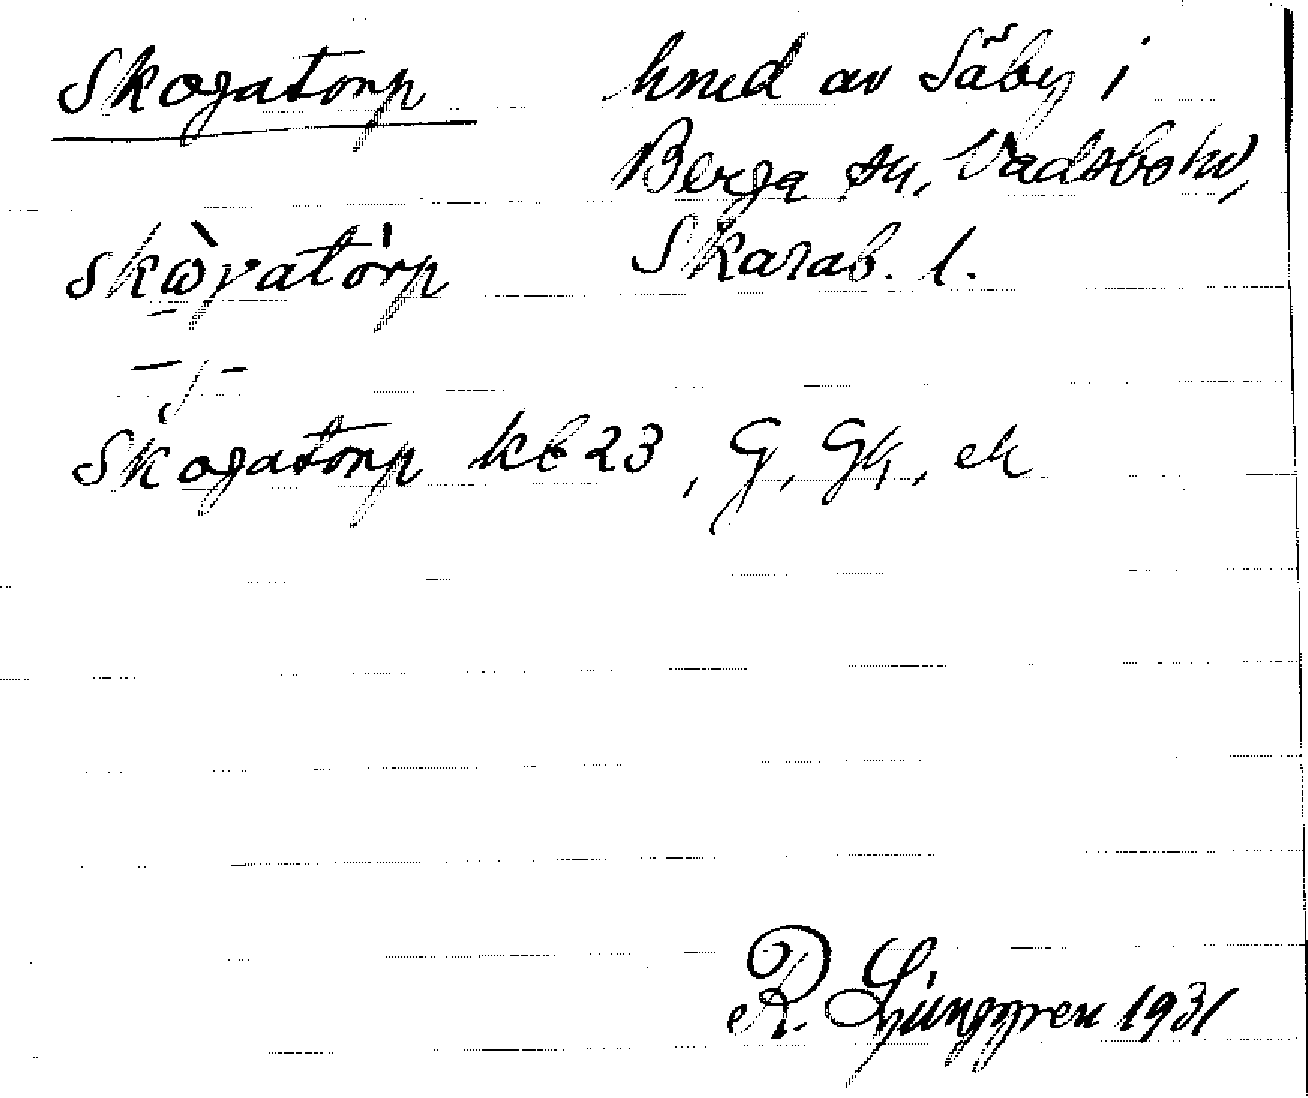 Skogatorp hmd av Säby i
Berga sn, Vadsbo hd,
skωγatorp Skarab. l.
-j-
Skogatorp kb 23, G, Gk, ek
R. Ljunggren 1931